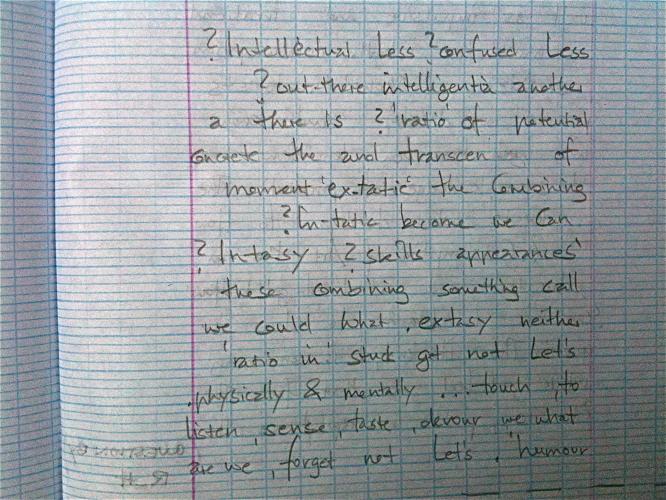 ? Intellectual Less ? confused Less
? out-there intelligentia another
a there is ? 'ratio' of potential
concrete the and transcen of
moment 'ex-tatic' the Combining
? In-tatic become we Can
? Intasy ? skills appearances'
these combining something call
we could What , extasy neither
'ratio in' stuck get not Let's
. physically & mentally ... touch , to
listen , sense , taste , devour we what
are we , forget not Let's , humour